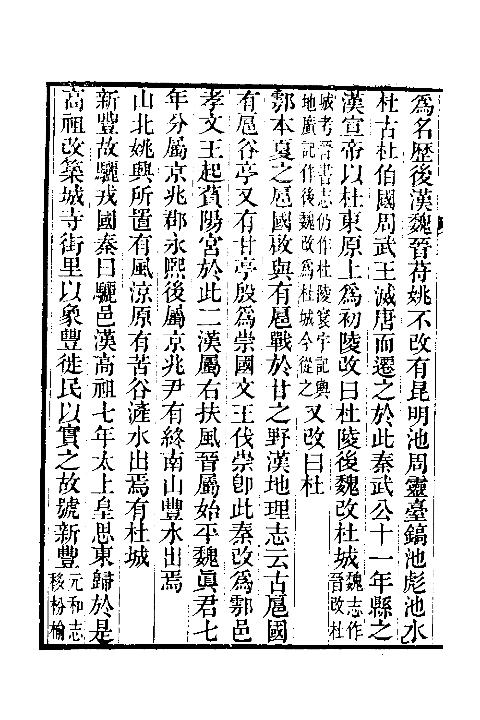 爲名歷後漢魏晉苻姚不改有昆明池周靈臺鎬池彪池水
杜古杜伯國周武王滅唐而遷之於此秦武公十一年縣之
漢宣帝以杜東原上爲初陵改曰杜陵後魏改杜城魏志作晉改杜
城考晉書志仍作杜陵寰宇記輿地廣記作後魏改爲杜城今從之又改曰杜
鄠本夏之扈國啟與有扈戰於甘之野漢地理志云古扈國
有扈谷亭又有甘亭殷爲崇國文王伐崇卽此秦改爲鄠邑
孝文王起萯陽宮於此二漢屬右扶風晉屬始平魏眞君七
年分屬京兆郡永熙後屬京兆尹有終南山豐水出焉
山北姚興所置有風涼原有苦谷滻水出焉有杜城
新豐故驪戎國秦曰驪邑漢高祖七年太上皇思東歸於是
高祖改築城寺街里以象豐徙民以實之故號新豐元和志移枌榆